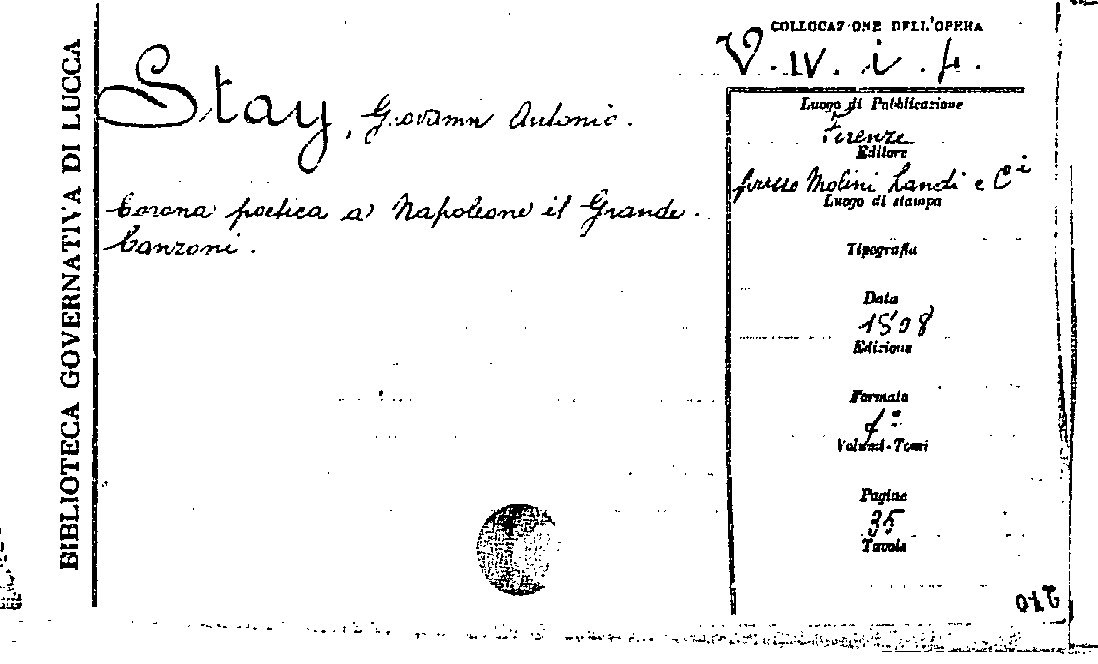 BIBLIOTECA GOVERNATIVA DI LUCCA
Stay, Giovanni Antonio.
Corona poetica a Napoleone il Grande.
Canzoni.
COLLOCAZIONE DELL'OPERA
V. IV. i. 4.
Luogo di Pubblicazione
Firenze
Editore
presso Molini Landi e Cⁱ
Luogo di stampa
Tipografia
Data
1808
Edizione
Formato
Volumi-Tomi
Pagine
35
Tavole